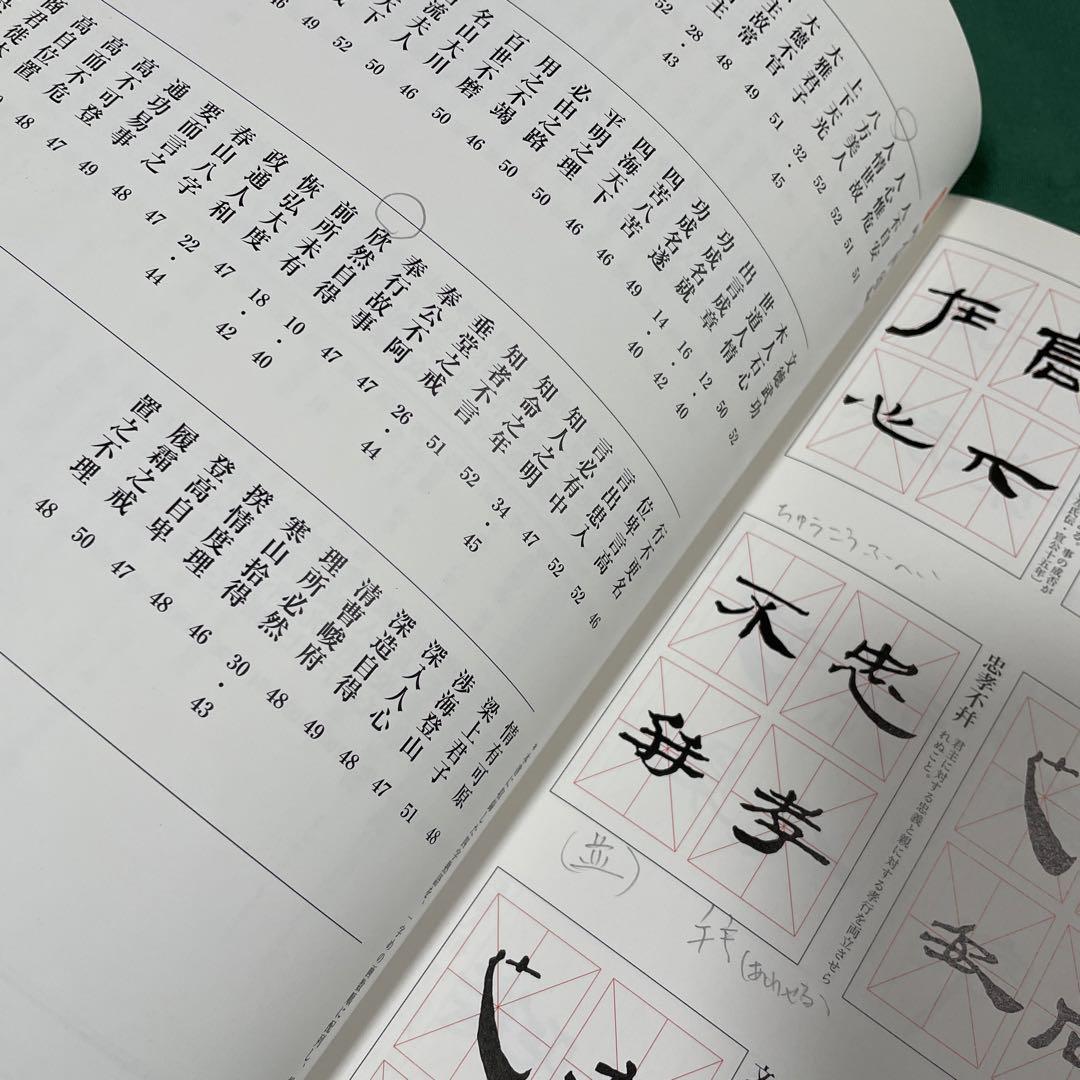 人不自安 51
人心惟危 51
人情世故 52
八方美人 52
上下天光 32・45
大雅君子 51
大德不官 49
主故常 48
主 28・43
52
文德武功 52
木人石心 50
世道人情 12・40
出言成章 16・42
功成名就 14・40
功成名遂 49
四苦八苦 46
四海天下 46
平明之理 50
必由之路 50
用之不竭 46
百世不磨 50
名山大川 46
流夫人 50
天下 52
行不更名 46
位卑言高 52
言出患人 52
言必有中 47
知人之明 34・45
知命之年 52
知者不言 51
垂堂之戒 26・44
奉公不阿 47
奉行故事 47
欣然自得 10・40
前所未有 18・42
恢弘大度 47
政通人和 22・44
春山八字 47
要而言之 48
通功易事 49
高不可登 47
高而不危 48
高自位置 48
君徙木
情有可原 48
梁上君子 51
涉海登山 47
深入人心 48
深造自得 49
清曹峻府 48
理所必然 30・43
寒山拾得 46
揆情度理 48
登高自卑 47
履霜之戒 50
置之不理 48
高下
在心
事の成否が
左氏伝・宣公十五年）
ちゅうこうふへい
忠孝不幷
君主に対する忠義と親に対する孝行を両立させら
れぬこと。
忠孝
不幷
（並）
（あわせる）
文